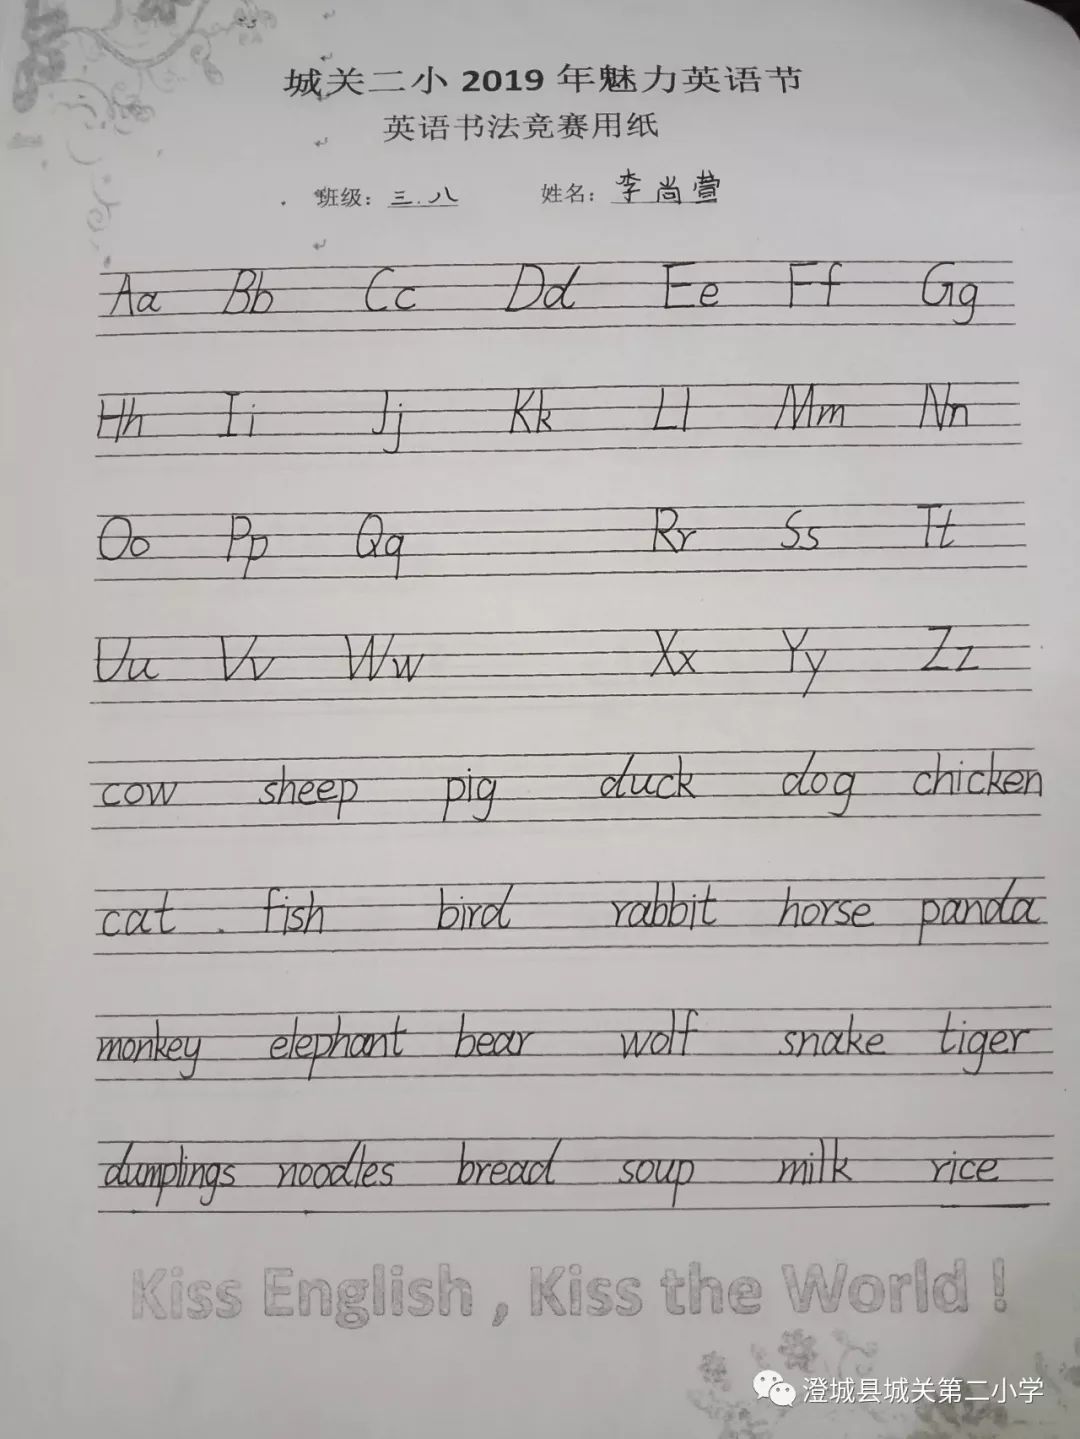 城关二小 2019 年魅力英语节
英语书法竞赛用纸
班级：三.八 姓名：李尚萱
Aa Bb Cc Dd Ee Ff Gg
Hh Ii Jj Kk Ll Mm Nn
Oo Pp Qq Rr Ss Tt
Uu Vv Ww Xx Yy Zz
cow sheep pig duck dog chicken
cat . fish bird rabbit horse panda
monkey elephant bear wolf snake tiger
dumplings noodles bread soup milk rice
Kiss English , Kiss the World !
澄城县城关第二小学